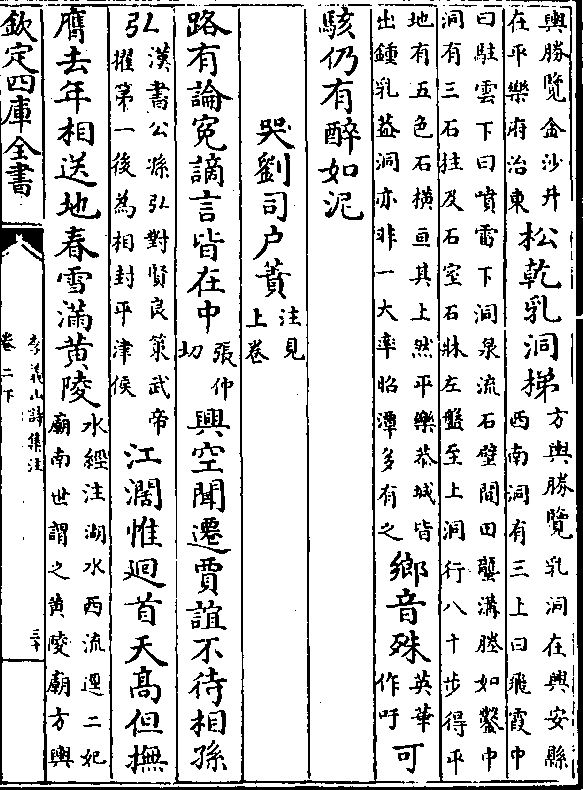 輿勝覽金沙井
在平樂府治東
松乾乳洞梯
方輿勝覽乳洞在興安縣
西南洞有三上曰飛霞中
曰駐雲下曰噴雷下洞泉流石壁間田壟溝塍如鑿中
洞有三石柱及石室石牀左盤至上洞行八十步得平
地有五色石橫亘其上然平樂恭城皆
出鍾乳葢洞亦非一大率昭潭多有之
鄉音殊
英華
作吁
可
駭仍有醉如泥
哭劉司户蕡
注見
上卷
路有論寃謫言皆在中
張仲
切
興空聞遷賈誼不待相孫
弘
漢書公孫弘對賢良策武帝
擢第一後為相封平津侯
江濶惟迴首天髙但撫
膺去年相送地春雪滿黄陵
水經注湖水西流逕二妃
廟南世謂之黄陵廟方輿
欽定四庫全書
李義山詩集注
卷二下
三十